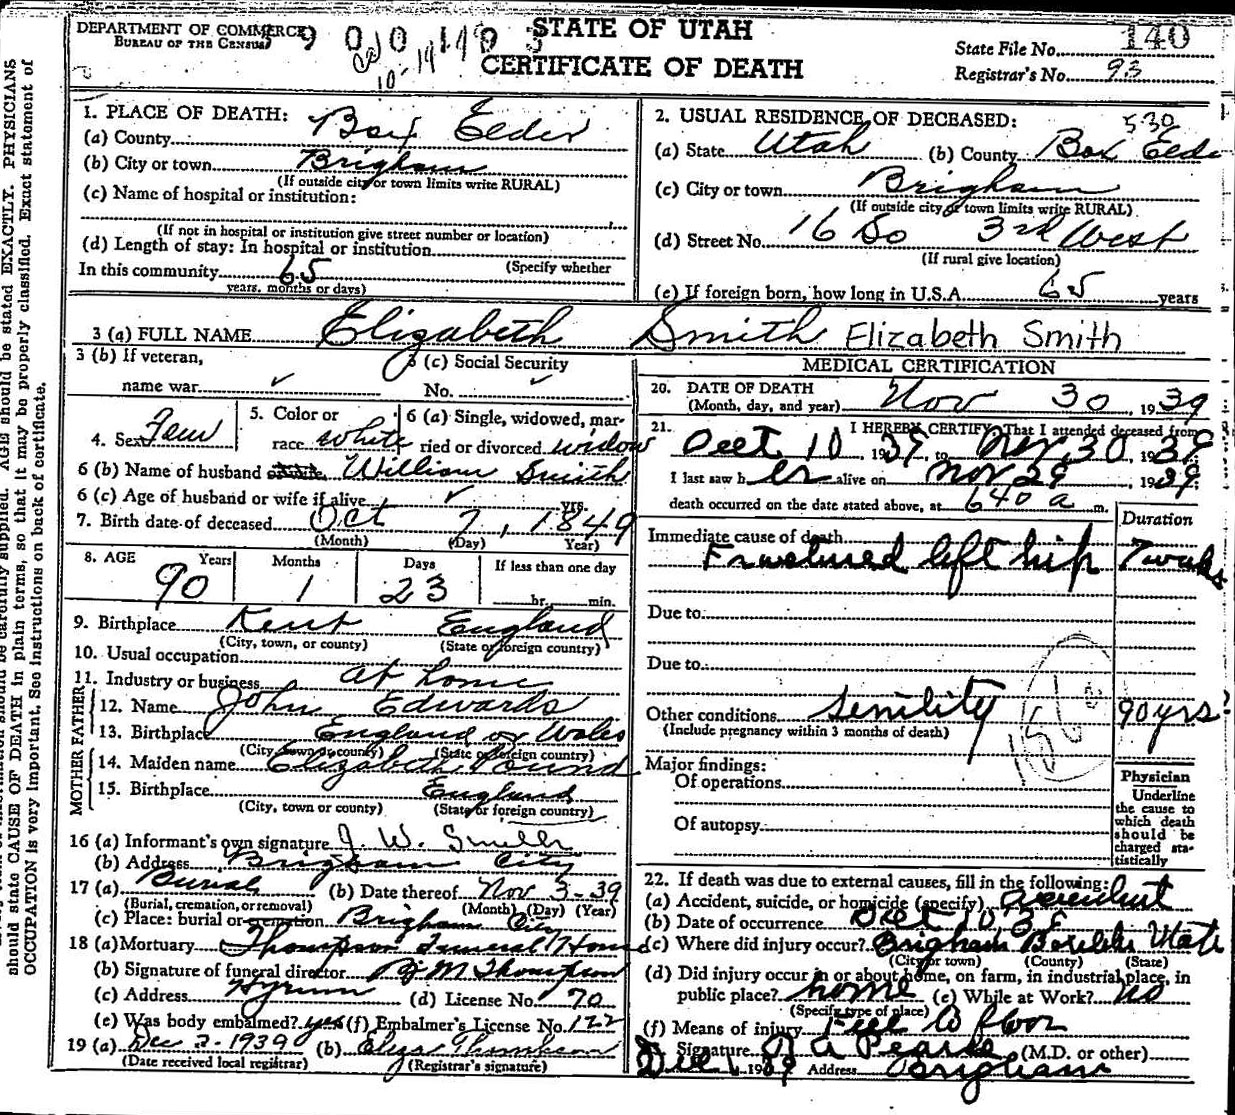 DEPARTMENT OF COMMERCE
BUREAU OF THE CENSUS
STATE OF UTAH
CERTIFICATE OF DEATH
State File No. 140
Registrar's No. 93
1. PLACE OF DEATH:
(a) County Box Elder
(b) City or town Brigham
(If outside city or town limits write RURAL)
(c) Name of hospital or institution:
(If not in hospital or institution give street number or location)
(d) Length of stay: In hospital or institution
In this community 65 (Specify whether
years, months or days)
2. USUAL RESIDENCE OF DECEASED: 530
(a) State Utah (b) County Box Elde
(c) City or town Brigham
(If outside city or town limits write RURAL)
(d) Street No. 16 So 3rd West
(If rural give location)
(e) If foreign born, how long in U.S.A. 65 years
3 (a) FULL NAME Elizabeth Smith Elizabeth Smith
3 (b) If veteran,
name war ✓
(c) Social Security
No. ✓
4. Sex Fem
5. Color or
race white
6 (a) Single, widowed, mar-
ried or divorced widow
6 (b) Name of husband William Smith
6 (c) Age of husband or wife if alive ✓ yrs.
7. Birth date of deceased Oct 7, 1849
(Month) (Day) Year)
8. AGE Years Months Days If less than one day
90 1 23 hr. min.
9. Birthplace Kent England
(City, town, or county) (State or foreign country)
10. Usual occupation
11. Industry or business at home
FATHER
12. Name John Edwards
13. Birthplace England or Wales
(City, town or county) (State or foreign country)
MOTHER
14. Maiden name Elizabeth Pound
15. Birthplace England
(City, town or county) (State or foreign country)
16 (a) Informant's own signature J. W. Smith
(b) Address Brigham City
17 (a) Burial (b) Date thereof Nov 3-39
(Burial, cremation, or removal) (Month) (Day) (Year)
(c) Place: burial or cremation Brigham City
18 (a) Mortuary Thompson Funeral Home
(b) Signature of funeral director M Thompson
(c) Address Hyrum (d) License No. 70
(e) Was body embalmed? yes (f) Embalmer's License No. 122
19 (a) Dec 2-1939 (b)
(Date received local registrar) (Registrar's signature)
MEDICAL CERTIFICATION
20. DATE OF DEATH
(Month, day, and year) Nov 30, 1939
21. I HEREBY CERTIFY That I attended deceased from
Oct 10, 1939, to Nov 30, 1939
I last saw her alive on Nov 29, 1939
death occurred on the date stated above, at 640 a m.
Duration
Immediate cause of death
Fractured left hip 7 weeks
Due to
Due to
Other conditions Senility 90 yrs
(Include pregnancy within 3 months of death)
Major findings:
Of operations
Of autopsy
Physician
Underline
the cause to
which death
should be
charged sta-
tistically
22. If death was due to external causes, fill in the following:
(a) Accident, suicide, or homicide (specify) accident
(b) Date of occurrence Oct 10 39
(c) Where did injury occur? Brigham Box Elder Utah
(City or town) (County) (State)
(d) Did injury occur in or about home, on farm, in industrial place, in
public place? home (e) While at Work? no
(Specify type of place)
(f) Means of injury Fell to floor
Signature R A Pearse (M.D. or other)
Dec 1, 1939 Address Brigham
should be stated EXACTLY. PHYSICIANS
should state CAUSE OF DEATH in plain terms, so that it may be properly classified. Exact statement of
OCCUPATION is very important. See instructions on back of certificate.